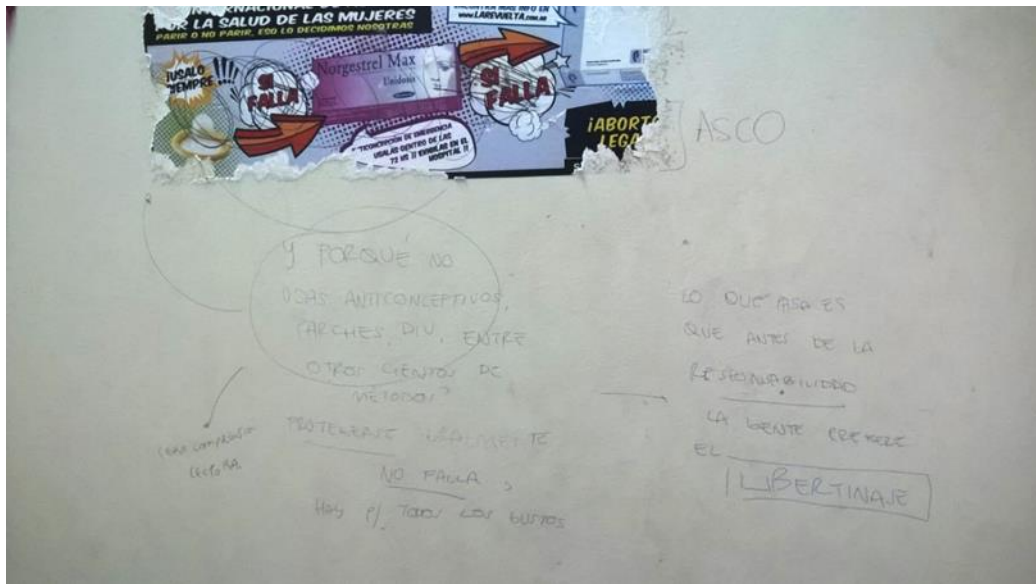 INTERNACIONAL DE
POR LA SALUD DE LAS MUJERES
PARIR O NO PARIR, ESO LO DECIDIMOS NOSOTRAS
INFO EN
www.LAREVUELTA.com.ar
¡USALO
SIEMPRE!!!
SI
FALLA
Norgestrel Max
Unidosis
SI
FALLA
ANTICONCEPCIÓN DE EMERGENCIA
USALAS DENTRO DE LAS
72 HS !! EXIGILAS EN EL
HOSPITAL !!
¡ABORTO
LEGAL
ASCO
Y PORQUÉ NO
USAS ANTICONCEPTIVOS,
PARCHES, DIU, ENTRE
OTROS CIENTOS DE
METODOS?
PROTEGERSE REALMENTE
NO FALLA,
HAY P/ TODOS LOS GUSTOS
CERO COMPRENSIÓN
LECTORA
LO QUE PASA ES
QUE ANTES DE LA
RESPONSABILIDAD
LA GENTE PREFIERE
EL
LIBERTINAJE